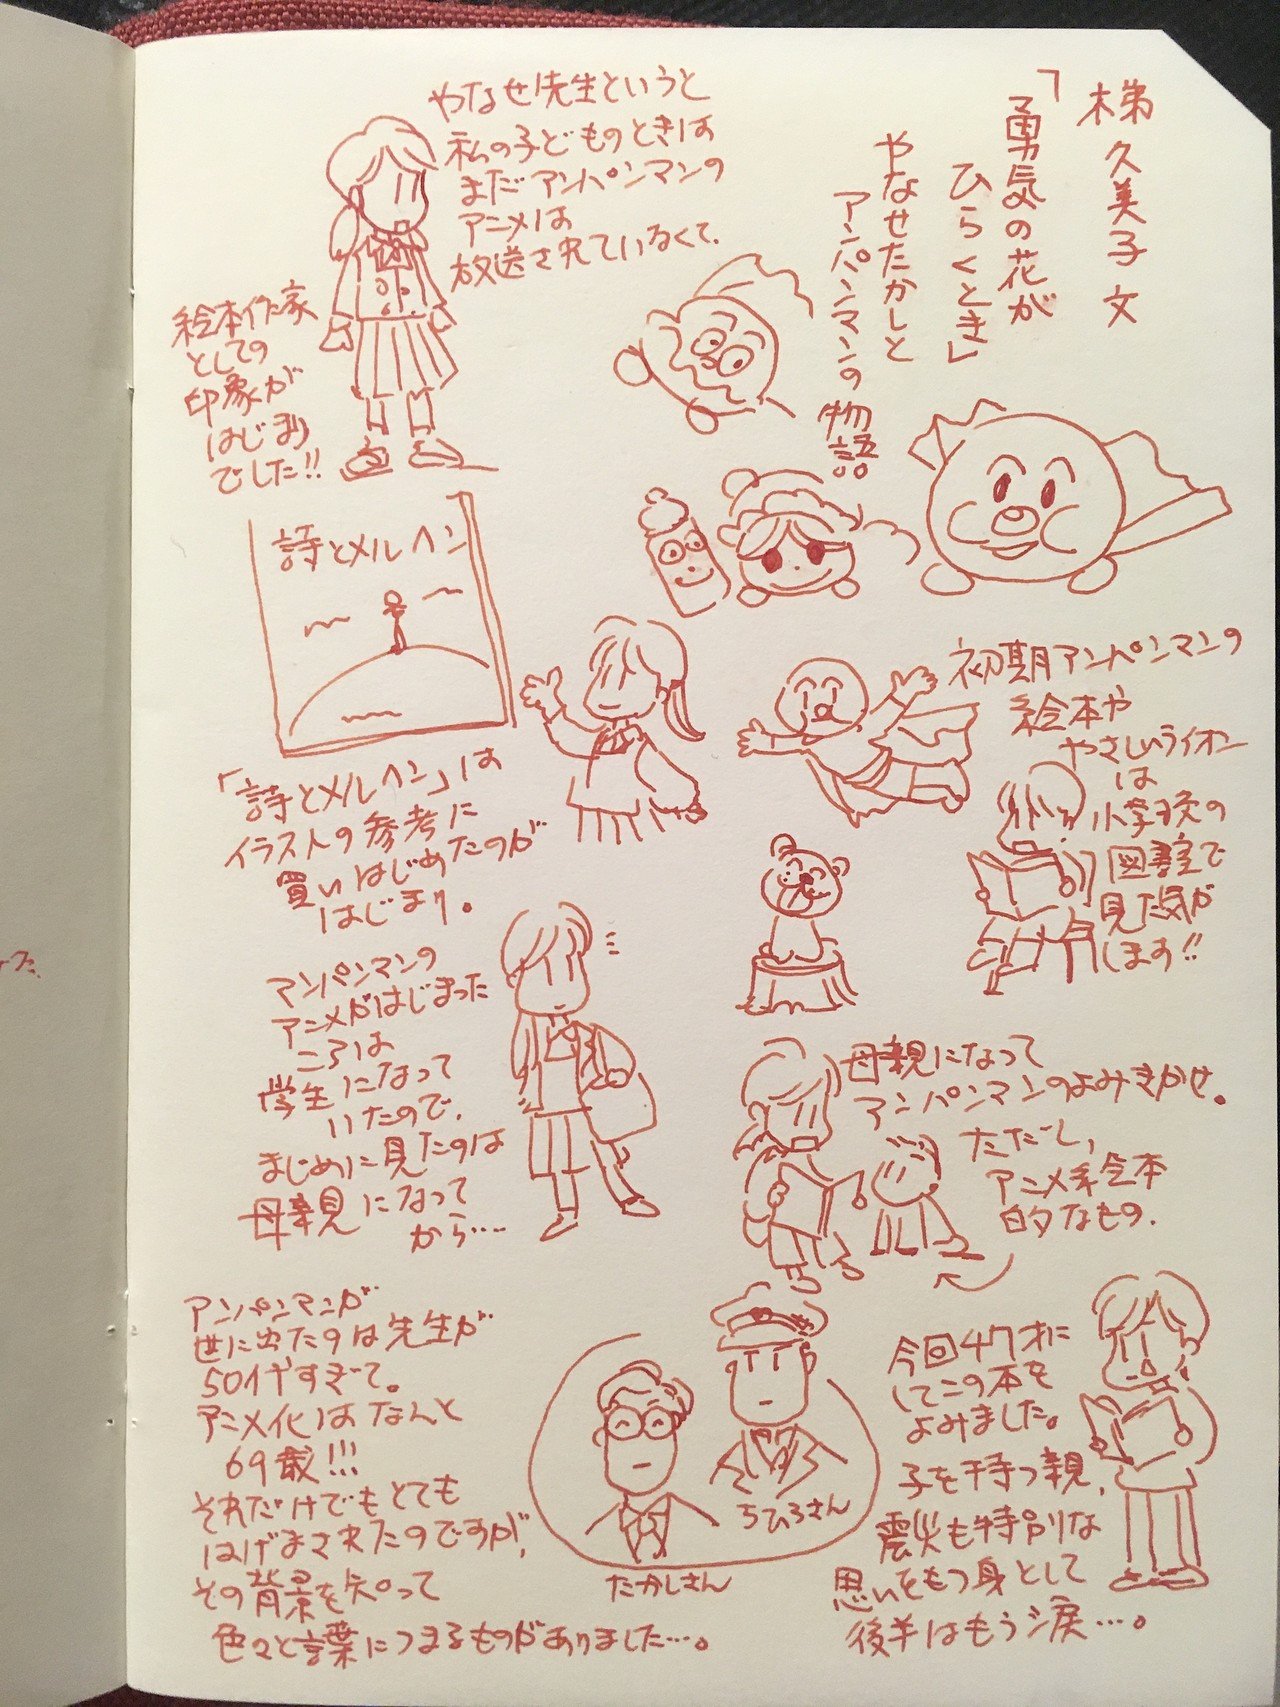 梯久美子 文
「勇気の花が
ひらくとき」
やなせたかしと
アンパンマンの物語
やなせ先生というと
私の子どものときは
まだアンパンマンの
アニメは
放送されていなくて、
絵本作家
としての
印象が
はじまり
でした!!
詩とメルヘン
「詩とメルヘン」は
イラストの参考に
買いはじめたのが
はじまり。
初期アンパンマンの
絵本や
やさしいライオン
は
小学校の
図書室で
見た気が
します!!
アンパンマンの
アニメがはじまった
ころは
学生になって
いたので、
まじめに見たのは
母親になって
から…
母親になって
アンパンマンのよみきかせ。
ただし、
アニメ系絵本
的なもの、
アンパンマンが
世に出たのは先生が
50代すぎて。
アニメ化はなんと
69歳!!!
それだけでもとても
はげまされたのですが、
その背景を知って
色々と言葉につまるものがありました…。
ちひろさん
たかしさん
今回47才に
してこの本を
よみました。
子を持つ親、
震災も特別な
思いをもつ身として
後半はもう涙…。